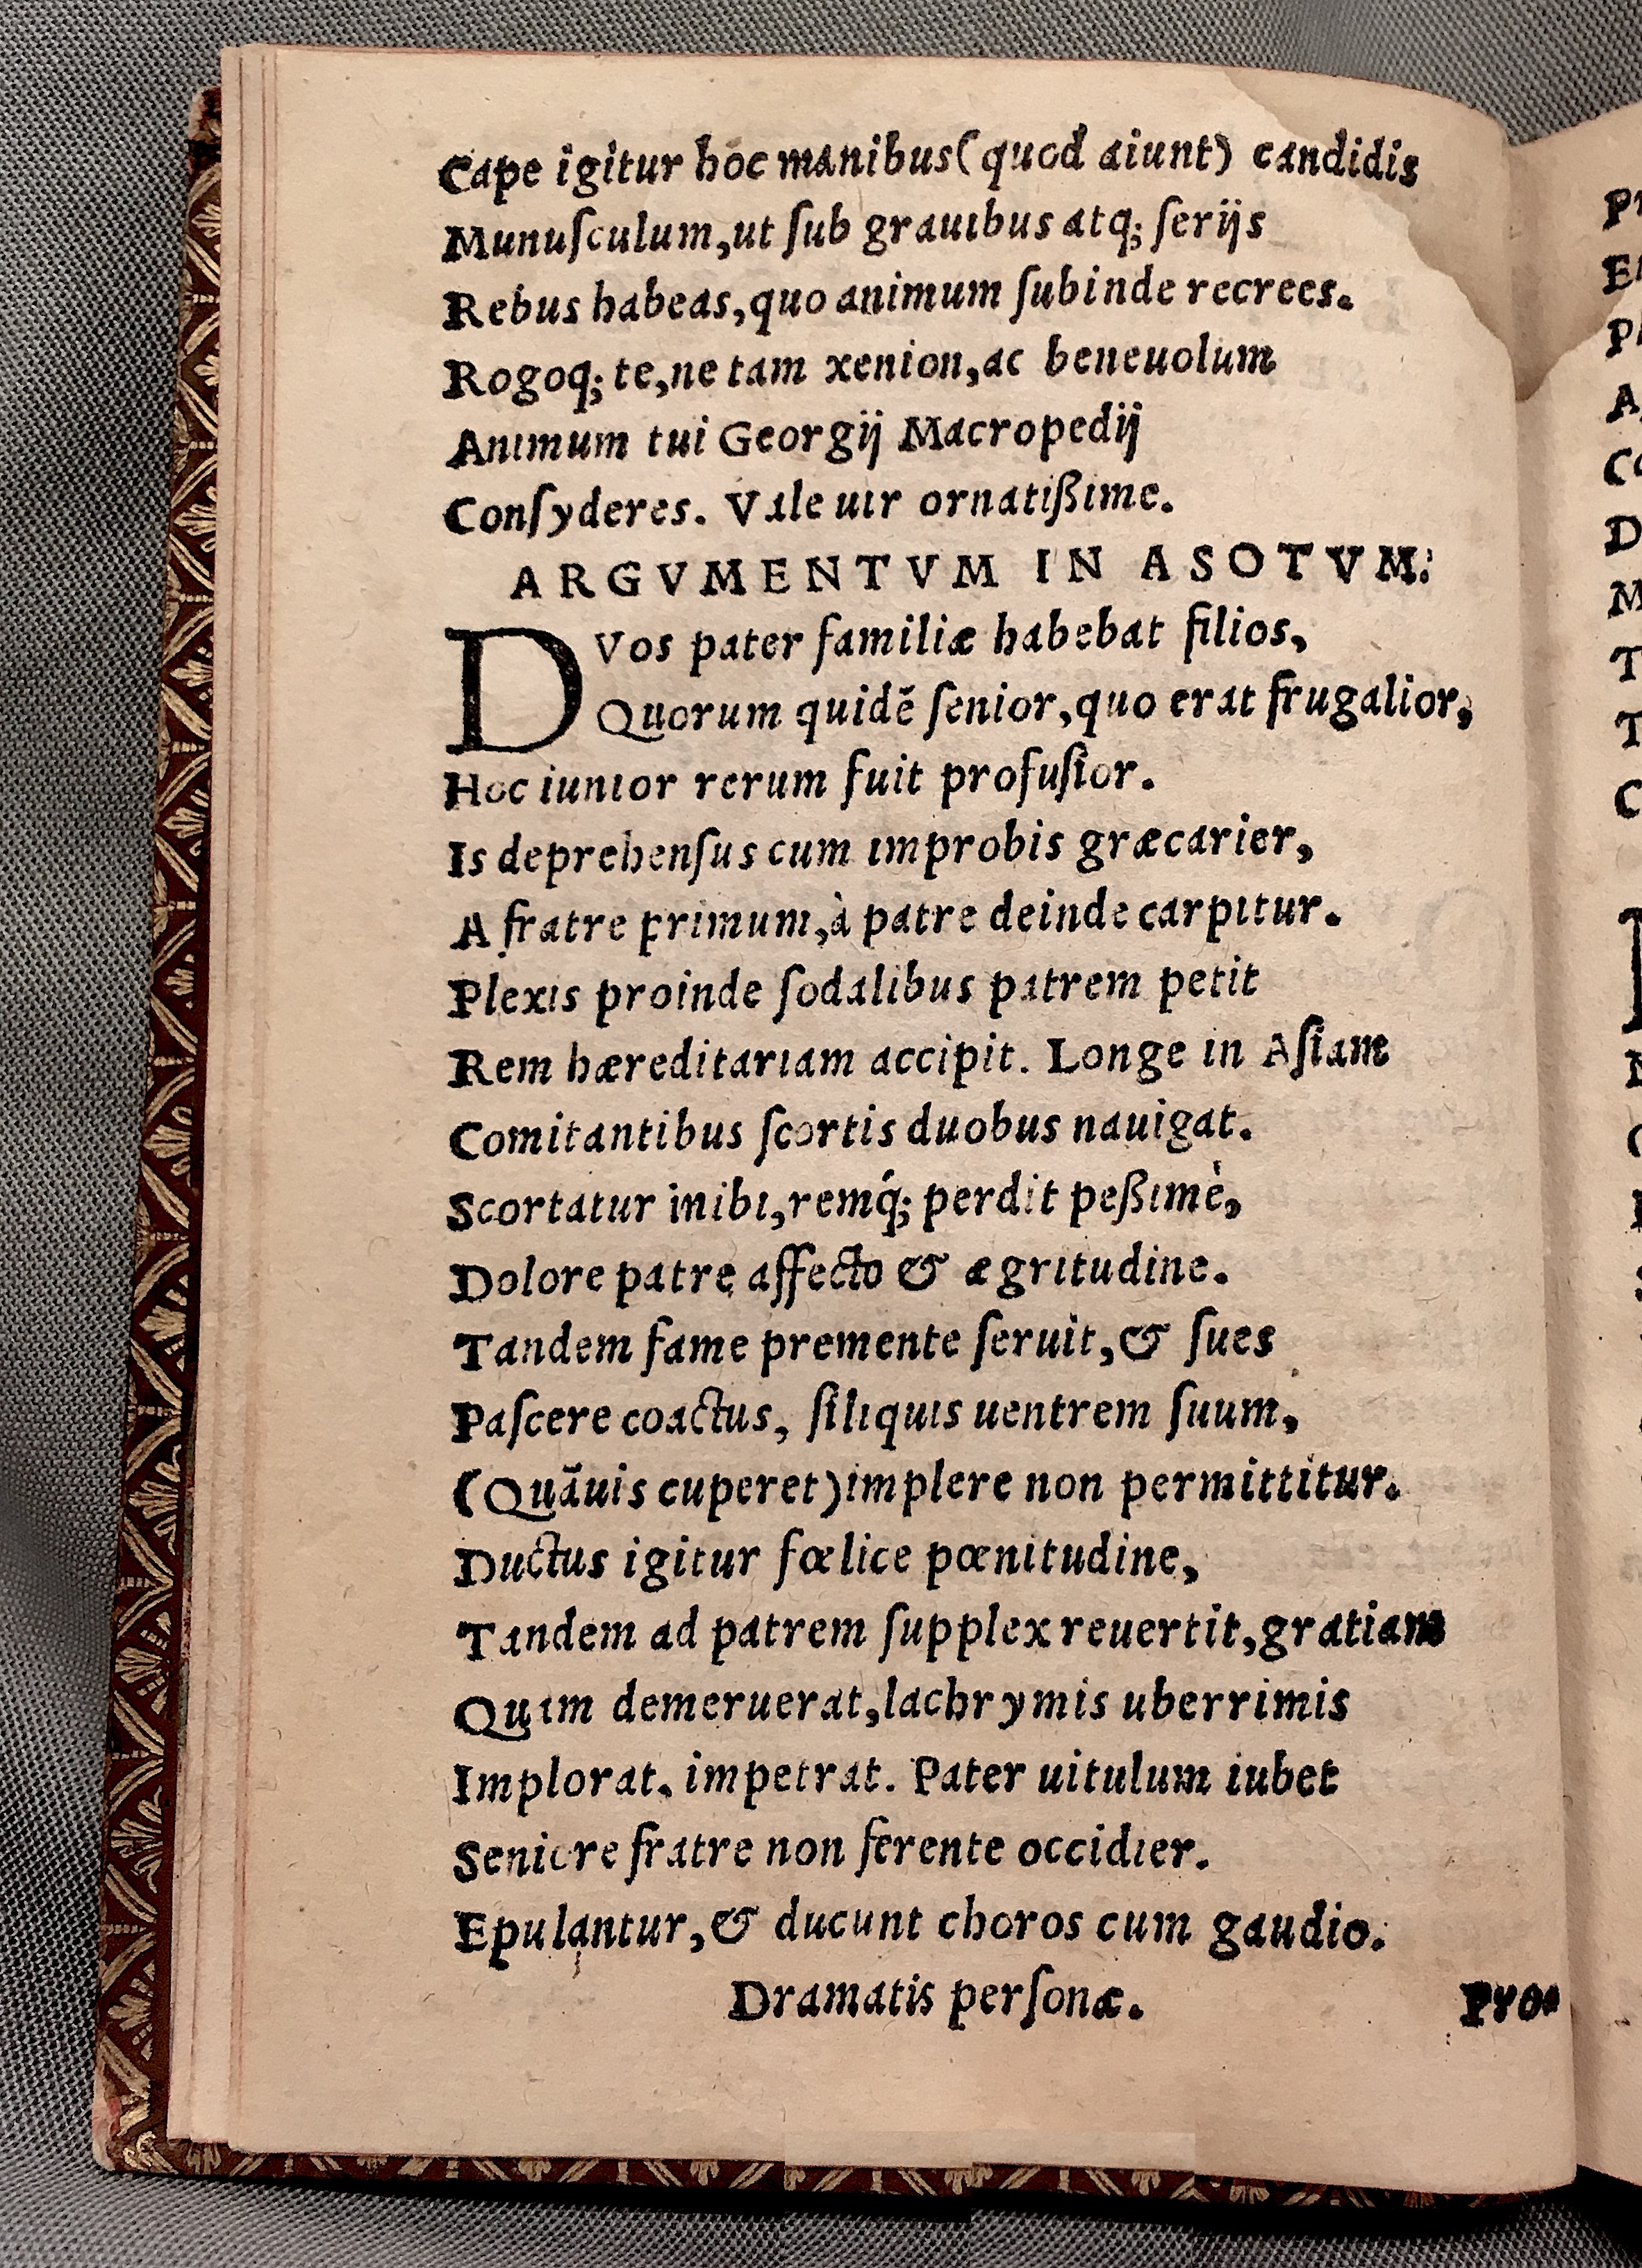 Cape igitur hoc manibus(quod aiunt) candidis
Munuſculum,ut ſub grauibus atq; ſerijs
Rebus habeas,quo animum ſubinde recrees.
Rogoq; te,ne tam xenion,ac beneuolum
Animum tui Georgij Macropedij
Conſyderes. Vale uir ornatißime.
ARGVMENTVM IN ASOTVM.
DVos pater familiæ habebat filios,
Quorum quidē ſenior,quo erat frugalior,
Hoc iunior rerum fuit profuſior.
Is deprehenſus cum improbis græcarier,
A fratre primum,à patre deinde carpitur.
Plexis proinde ſodalibus patrem petit
Rem hæreditariam accipit. Longe in Aſiam
Comitantibus ſcortis duobus nauigat.
Scortatur inibi,remq́; perdit peßimè,
Dolore patre affecto & ægritudine.
Tandem fame premente ſeruit,& ſues
Paſcere coactus, ſiliquis uentrem ſuum,
(Quāuis cuperet)implere non permittitur.
Ductus igitur fœlice pœnitudine,
Tandem ad patrem ſupplex reuertit,gratiam
Quam demeruerat,lachrymis uberrimis
Implorat. impetrat. Pater uitulum iubet
Seniore fratre non ferente occidier.
Epulantur,& ducunt choros cum gaudio.
Dramatis perſonæ.
Pro-